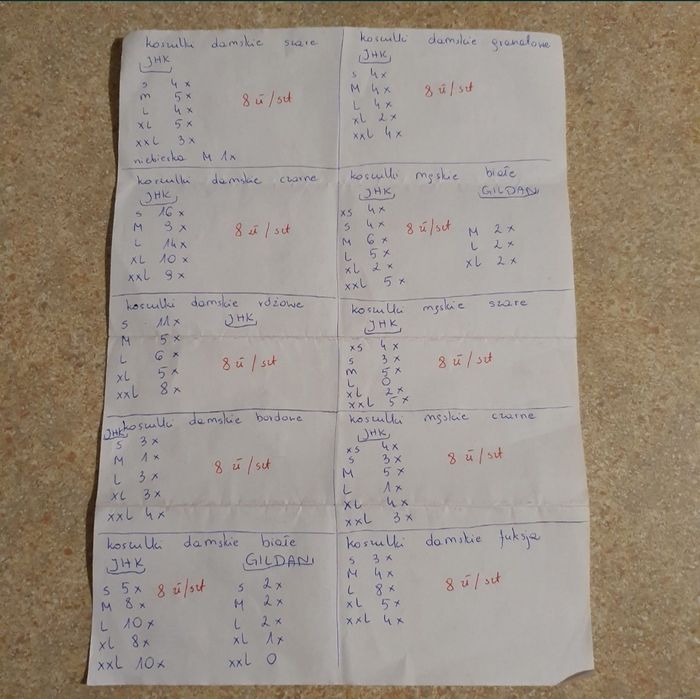 koszulki damskie szare
JHK
S 4x
M 5x
L 4x
XL 5x
XXL 3x
8 zł/szt
niebieska M 1x
koszulki damskie granatowe
JHK
S 4x
M 4x
L 4x
XL 2x
XXL 4x
8 zł/szt
koszulki damskie czarne
JHK
S 16x
M 9x
L 14x
XL 10x
XXL 9x
8 zł/szt
koszulki męskie białe
JHK
XS 4x
S 4x
M 6x
L 5x
XL 2x
XXL 5x
8 zł/szt
GILDAN
M 2x
L 2x
XL 2x
koszulki damskie różowe
JHK
S 11x
M 5x
L 6x
XL 5x
XXL 8x
8 zł/szt
koszulki męskie szare
JHK
XS 4x
S 3x
M 5x
L 0
XL 2x
XXL 5x
8 zł/szt
koszulki damskie bordowe
JHK
S 3x
M 1x
L 3x
XL 3x
XXL 4x
8 zł/szt
koszulki męskie czarne
JHK
XS 4x
S 3x
M 5x
L 1x
XL 4x
XXL 3x
8 zł/szt
koszulki damskie białe
JHK
S 5x
M 8x
L 10x
XL 8x
XXL 10x
8 zł/szt
GILDAN
S 2x
M 2x
L 2x
XL 1x
XXL 0
koszulki damskie fuksja
S 3x
M 4x
L 8x
XL 5x
XXL 4x
8 zł/szt